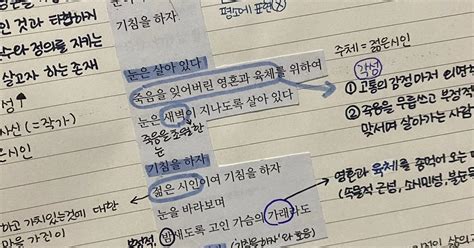 인 것과 타협하지
수와 정의를 지키는
살고자 하는 존재
성↑
사신 (=작가)
은시인
하고 가치있는것에 대한
마음을 가진이
기침을 하자.
평소에 표현(X)
눈은 살아 있다
죽음을 잊어버린 영혼과 육체를 위하여
눈은 새벽이 지나도록 살아 있다
죽음을 초월한
는
기침을 하자
젊은 시인이여 기침을 하자
눈을 바라보며
밤새도록 고인 가슴의 가래라도
부정적,
('기침을 하자'와 호응)
주체 = 젊은시인
각성
① 고통의 감정마저
② 죽음을 무릅쓰고 부정적
맞서며 살아가는 사람
영혼과 육체를 좀먹어 오는
소시민성,